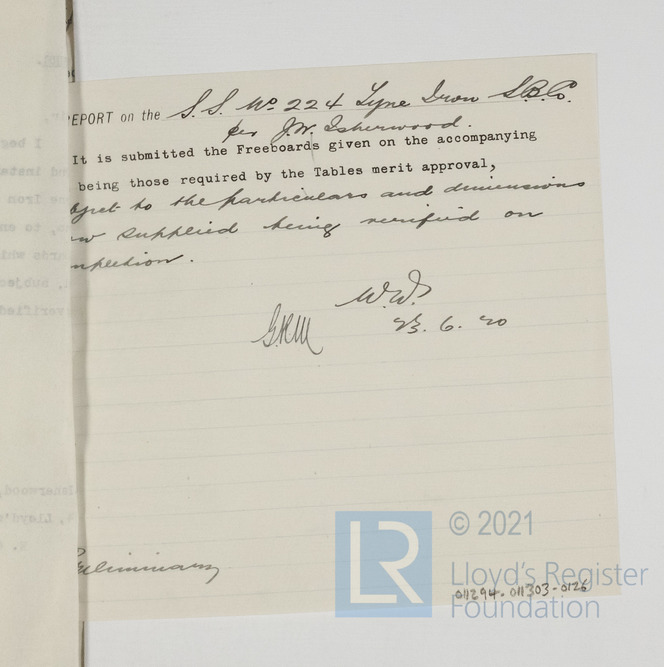 REPORT on the S.S. No 224 Tyne Iron S.B.Co.
per J.W. Isherwood.
It is submitted the Freeboards given on the accompanying
being those required by the Tables merit approval,
bject to the particulars and dimensions
ow supplied being verified on
mpletion.
W.W.
G.R.M
23.6.20
Preliminary
LR
© 2021
Lloyd's Register
Foundation
011294-011303-0126
I beg